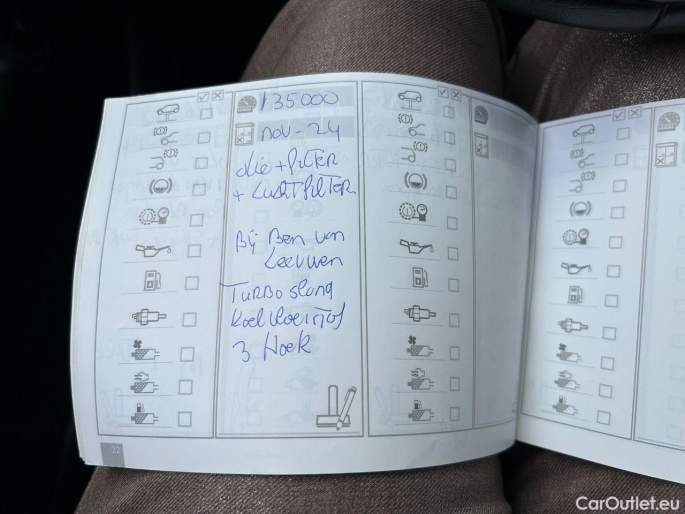 135000
nov-24
olie + filter
+ Luchtfilter.
Bij Ben van
Leeuwen
Turbo slang
Koelvloeistof
3 Hoek
22
CarOutlet.eu